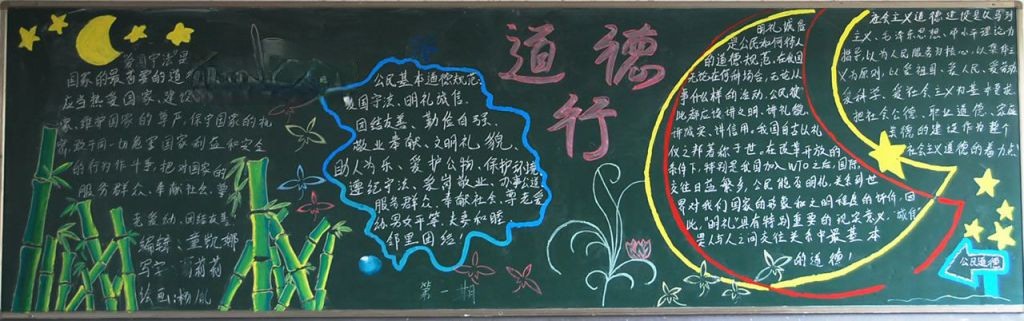 爱国守法是
国家的最重要的道
应当热爱国家、建设
家、维护国家的尊严,保守国家的礼
密,敢于同一切危害国家利益和安全
的行为作斗争,把对国家的
服务群众、奉献社会、尊
无爱幼、团结友善
编辑:董凯娜
写字:莉莉
绘画:
公民基本道德规范
爱国守法、明礼诚信、
团结友善、勤俭自强、
敬业奉献、文明礼貌、
助人为乐、爱护公物、保护环境
遵纪守法、爱岗敬业、办事公道
服务群众、奉献社会、尊老爱
幼、男女平等、夫妻和睦、
邻里团结!
第一期
道德
行
明礼诚信
是公民如何待人
的道德规范,在我国
无论在何种场合,无论从
事什么样的活动,公民彼
此都应该讲文明、讲礼貌、
讲诚实、讲信用,我国自古以礼
仪之邦著称于世,在改革开放的
条件下,特别是我国加入WTO之后,国际
交往日益繁多,公民能否明礼,关系到世
界对我们国家的形象和文明程度的评价,因
此,"明礼"具有特别重要的现实意义,"诚信"
是人与人之间交往关系中最基本
的道德!
社会主义道德建设是以马列
主义、毛泽东思想、邓小平理论为
指导,以为人民服务为核心,以集体主
义为原则,以爱祖国、爱人民、爱劳动
爱科学、爱社会主义为基本要求
把社会公德、职业道德、家庭
美德的建设作为整个
社会主义道德的着力点
公民道德